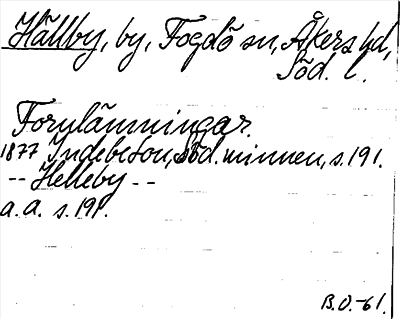 Hällby, by, Fogdö sn, Åkers hd,
Söd. l.
Fornlämningar.
1877 Indebetou, Söd. minnen, s. 191.
-- Helleby --
a. a. s. 191.
B.O.-61.